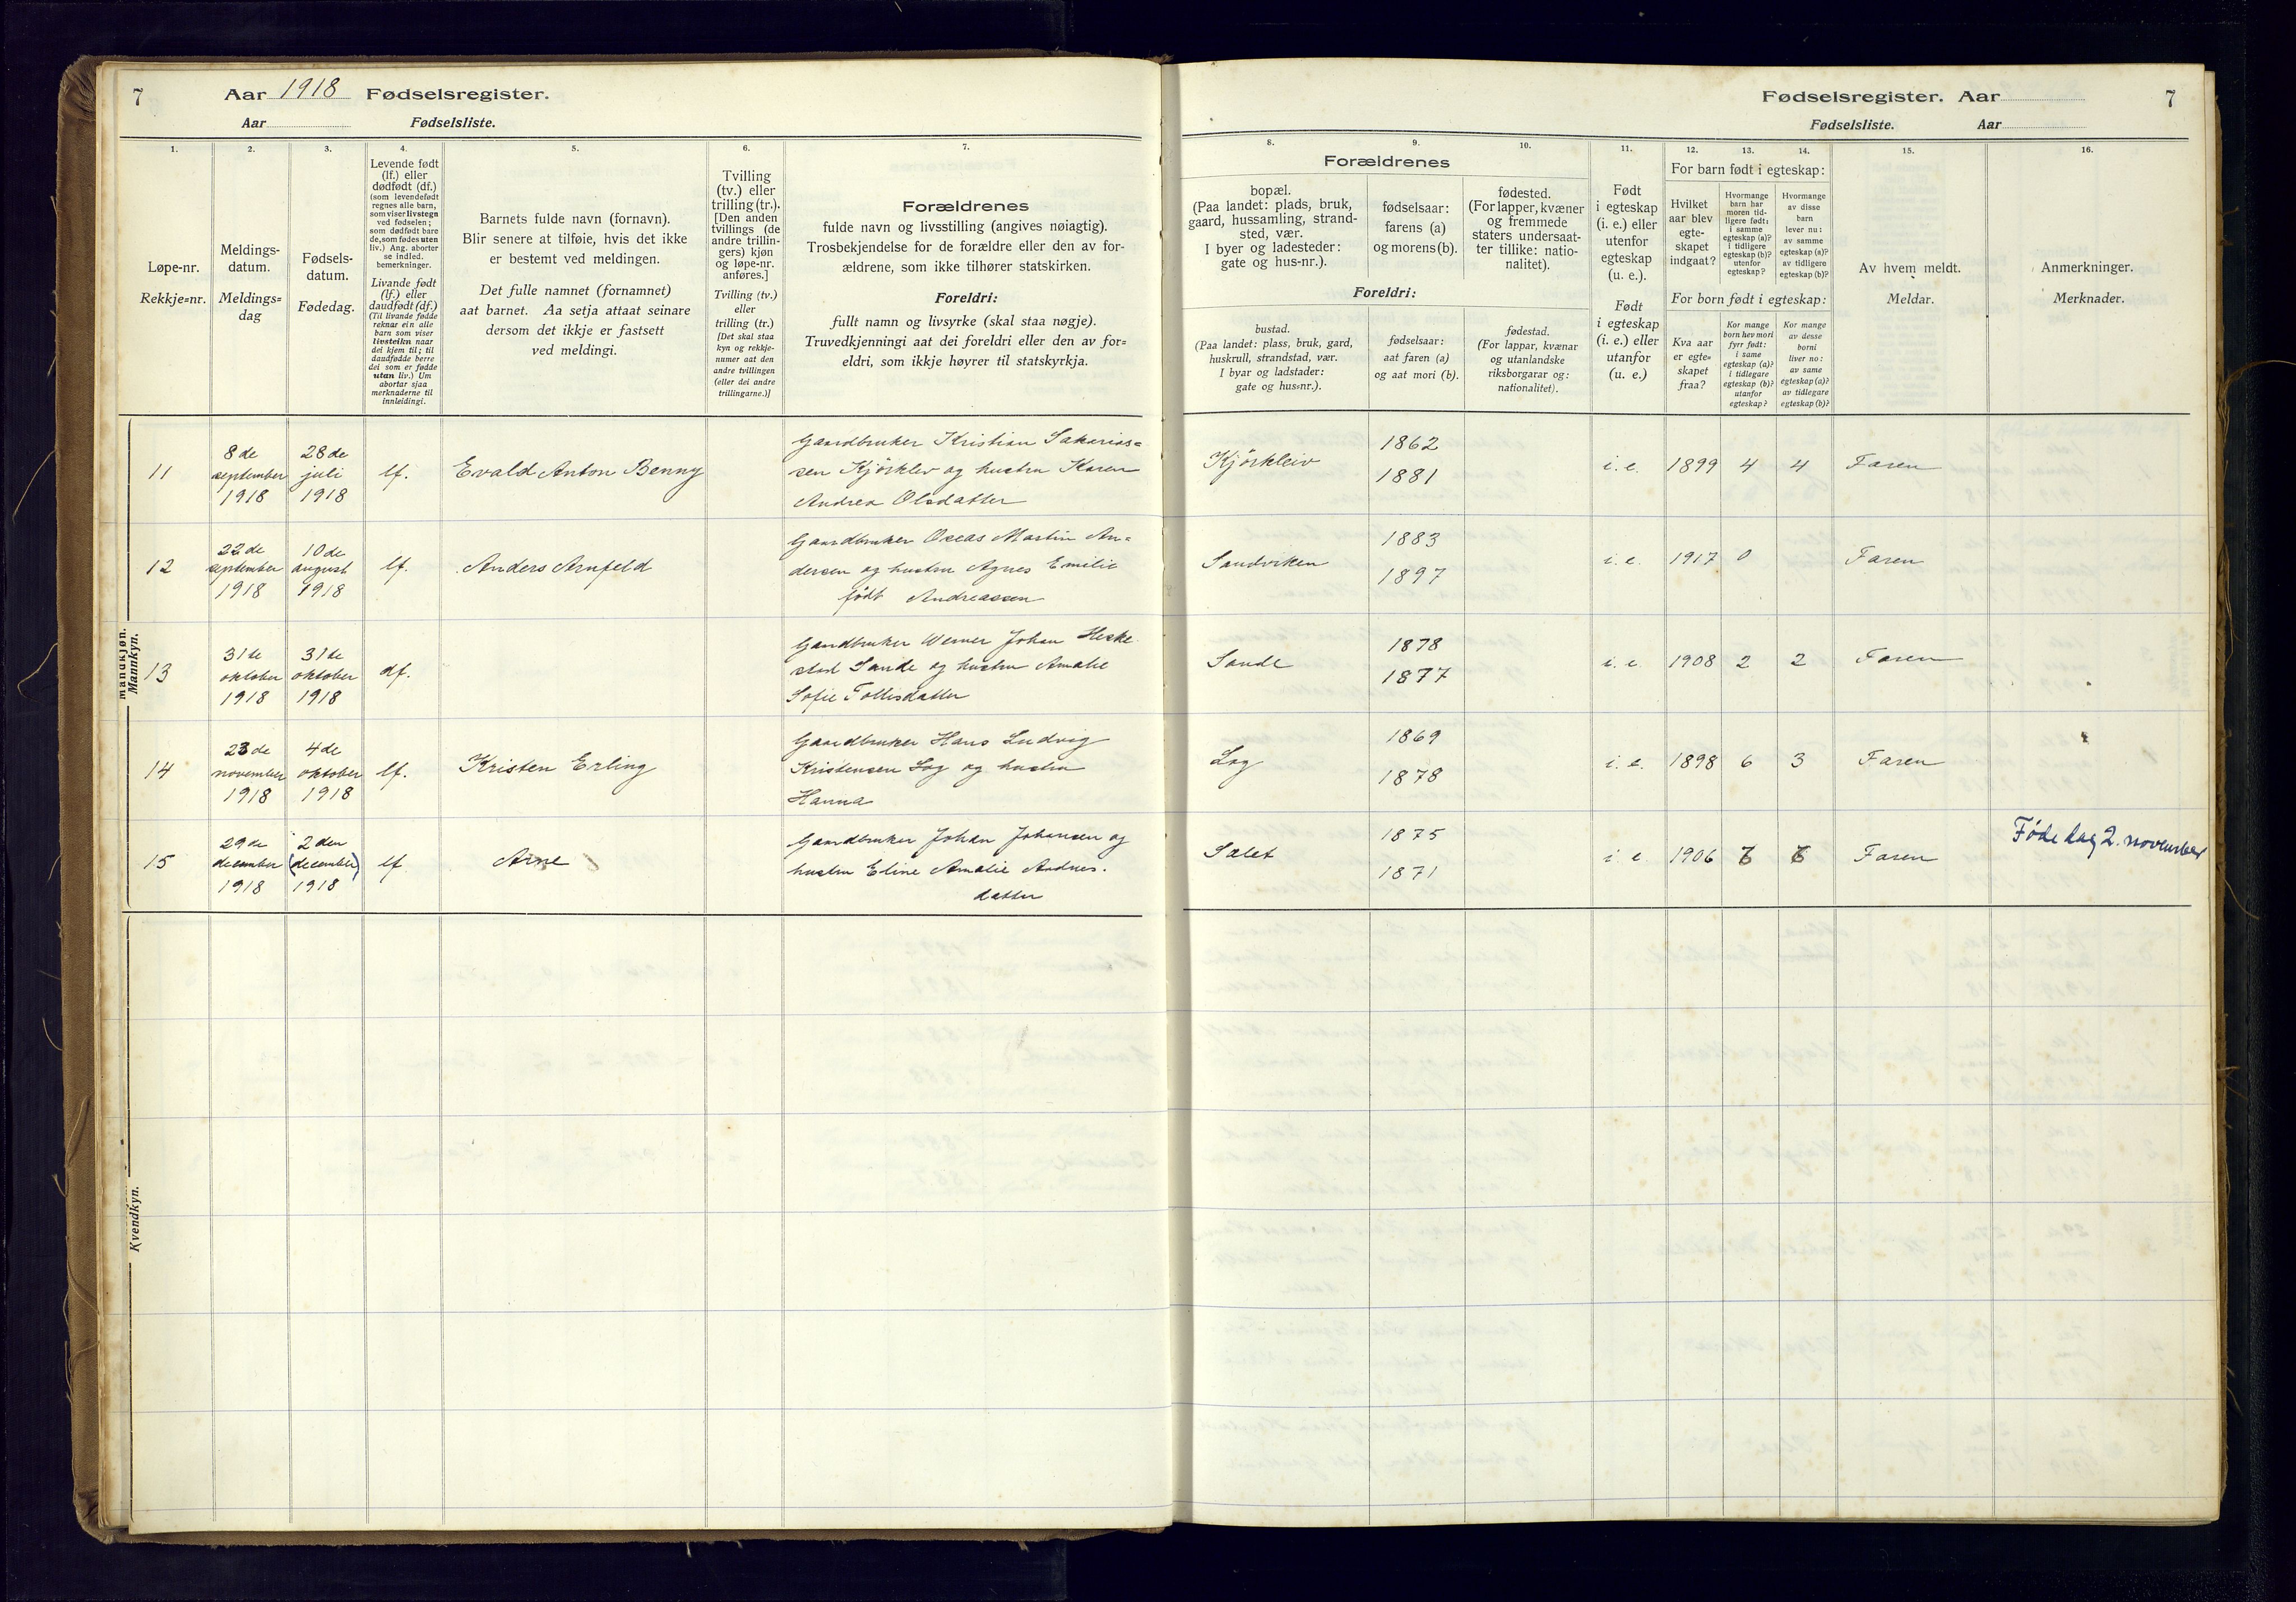 7
Aar 1918 Fødselsregister.
Aar Fødselsliste.
1.
Løpe-nr.
Rekkje=nr.
2.
Meldings-
datum.
Meldings=
dag
3.
Fødsels-
datum.
Fødedag.
4.
Levende født
(lf.) eller
dødfødt (df.)
(som levendefødt
regnes alle barn,
som viser livstegn
ved fødselen;
som dødfødt bare
de, som fødes uten
liv.) Ang. aborter
se indled.
bemerkninger.
Livande født
(lf.) eller
daudfødt (df.)
(Til livande fødde
reknar ein alle
barn som viser
livsteikn naar
dei kjem til; til
daudfødde berre
dei som er fødde
utan liv.) Um
abortar sjaa
merknaderne til
innleidingi.
5.
Barnets fulde navn (fornavn).
Blir senere at tilføie, hvis det ikke
er bestemt ved meldingen.
Det fulle namnet (fornamnet)
aat barnet. Aa setja attaat seinare
dersom det ikkje er fastsett
ved meldingi.
6.
Tvilling
(tv.) eller
trilling (tr.).
[Den anden
tvillings (de
andre trillin-
gers) kjøn
og løpe-nr.
anføres.]
Tvilling (tv.)
eller
trilling (tr.)
[Det skal staa
kyn og rekkje-
numer aat den
andre tvillingen
(eller dei andre
trillingarne.)]
7.
Forældrenes
fulde navn og livsstilling (angives nøiagtig).
Trosbekjendelse for de forældre eller den av for-
ældrene, som ikke tilhører statskirken.
Foreldri:
fullt namn og livsyrke (skal staa nøgje).
Truvedkjenningi aat dei foreldri eller den av for=
eldri, som ikkje høyrer til statskyrkja.
Mandkjøn.
Mannkyn.
11
8 de
september
1918
28 de
juli
1918
lf.
Evald Anton Benny
Gaardbruker Kristian Sakarias=
sen Kjørklev og hustru Karen
Andrea Olsdatter
12
22 de
september
1918
10 de
august
1918
lf.
Anders Arnfeld
Gaardbruker Oscas Martin An=
dersen og hustru Agnes Emilie
født Andreassen
13
31 te
oktober
1918
31 te
oktober
1918
df.
Gaardbruker Werner Johan Heske
stad Sande og hustru Amalie
Sofie Tollisdatter
14
23 de
november
1918
4 de
oktober
1918
lf.
Kristen Erling
Gaardbruker Hans Ludvig
Kristensen Log og hustru
Hanna
15
29 de
december
1918
2 den
(december)
1918
lf
Arne
Gaardbruker Johan Johansen og
hustru Eline Amalie Andres.
datter
Kvendkyn.
Fødselsregister. Aar
7
Fødselsliste. Aar
Forældrenes
8.
bopæl.
(Paa landet: plads, bruk,
gaard, hussamling, strand-
sted, vær.
I byer og ladesteder:
gate og hus-nr.).
9.
fødselsaar:
farens (a)
og morens (b).
10.
fødested.
(For lapper, kvæner
og fremmede
staters undersaat-
ter tillike: natio-
nalitet).
Foreldri:
bustad.
(Paa landet: plass, bruk, gard,
huskrull, strandstad, vær.
I byar og ladstader:
gate og hus=nr.).
fødselsaar:
aat faren (a)
og aat mori (b).
fødestad.
(For lappar, kvænar
og utanlandske
riksborgarar og:
nationalitet).
11.
Født
i egteskap
(i. e.) eller
utenfor
egteskap
(u. e.).
Født
i egteskap
(i. e.) eller
utanfor
egteskap
(u. e.)
For barn født i egteskap:
12.
Hvilket
aar blev
egte-
skapet
indgaat?
13.
Hvormange
barn har
moren tid-
ligere født:
i samme
egteskap (a)?
i tidligere
egteskap (b)?
utenfor
egteskap?
14.
Hvormange
av disse
barn
lever nu:
av samme
egteskap (a)?
av tidligere
egteskap (b)?
For born født i egteskap:
Kva aar
er egte=
skapet
fraa?
Kor mange
born hev mori
fyrr født:
i same
egteskap (a)?
i tidlegare
egteskap (b)?
utanfor
egteskap?
Kor mange
av desse
borni
liver no:
av same
egteskap (a)?
av tidlegare
egteskap (b)?
15.
Av hvem meldt.
Meldar.
16.
Anmerkninger.
Merknader.
Kjörkleiv
1862
1881
i. e. 1899 4 4 Faren
Sandviken
1883
1897
i. e. 1917 0 Faren
Sande
1878
1877
i. e. 1908 2 2 Faren
Log
1869
1878
i. e. 1898 6 3 Faren
Salet
1875
1871
i e 1906 Faren
Fødedag 2. november